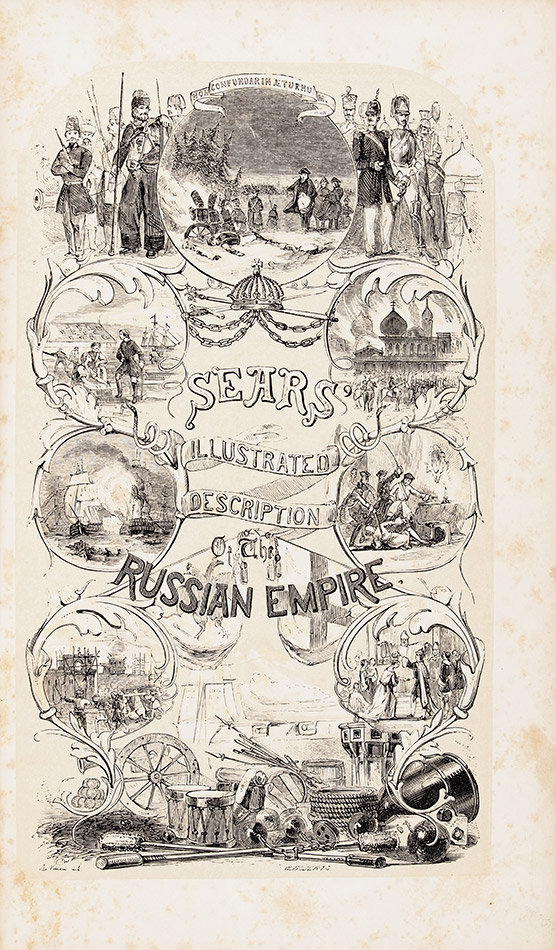 NON CONFUNDAR IN ÆTURNU
SEARS'
ILLUSTRATED
DESCRIPTION
Of The
RUSSIAN EMPIRE.